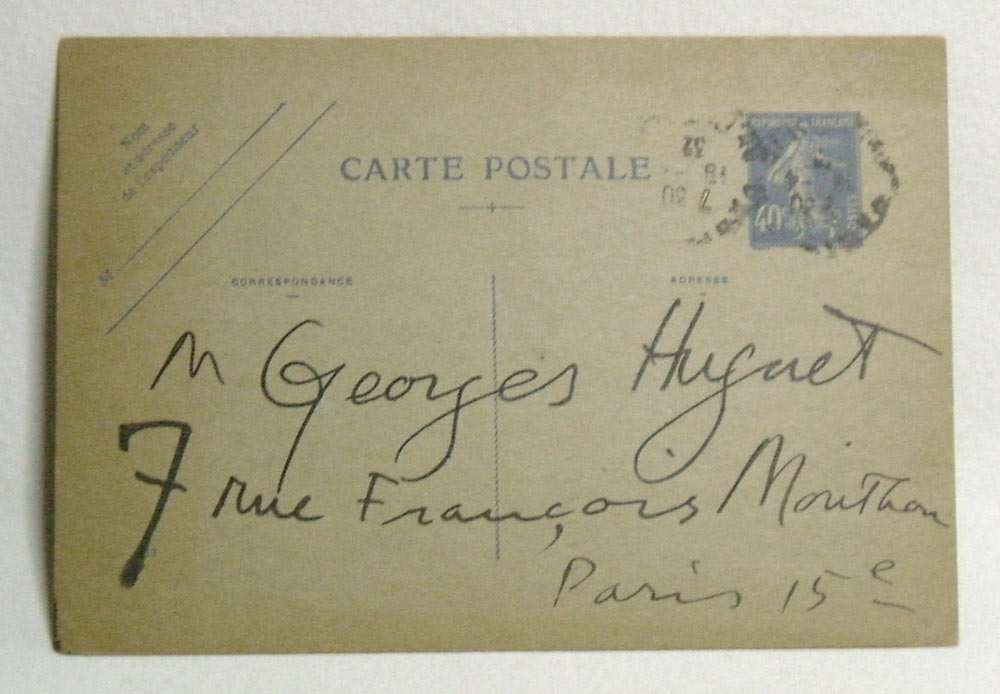 Nom
et adresse
de l'expéditeur
M
CARTE POSTALE
7 30
18
32
REPUBLIQUE FRANÇAISE
40
POSTES
CORRESPONDANCE
ADRESSE
M Georges Hugnet
7 rue François Mouthon
Paris 15e